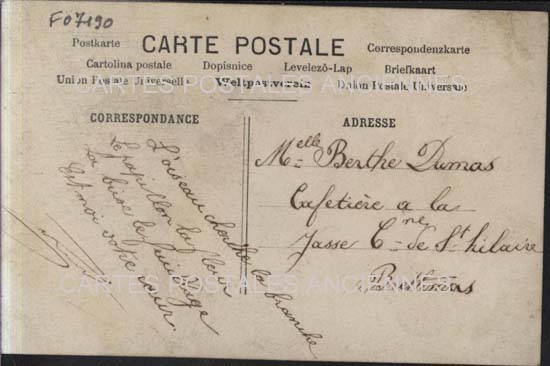 F07190
Postkarte
CARTE POSTALE
Correspondenzkarte
Cartolina postale Dopisnice Levelező-Lap Briefkaart
Union Postale Universelle Weltpostverein Union Postale Universelle
CARTES POSTALES ANCIENNES
CORRESPONDANCE
L'oiseau cherche la branche
Le papillon la fleur
La bise le
Et moi votre cœur.
ADRESSE
Melle Berthe Dumas
Cafetière a la
Jasse Cne de St hilaire
CARTES POSTALES ANCIENNES